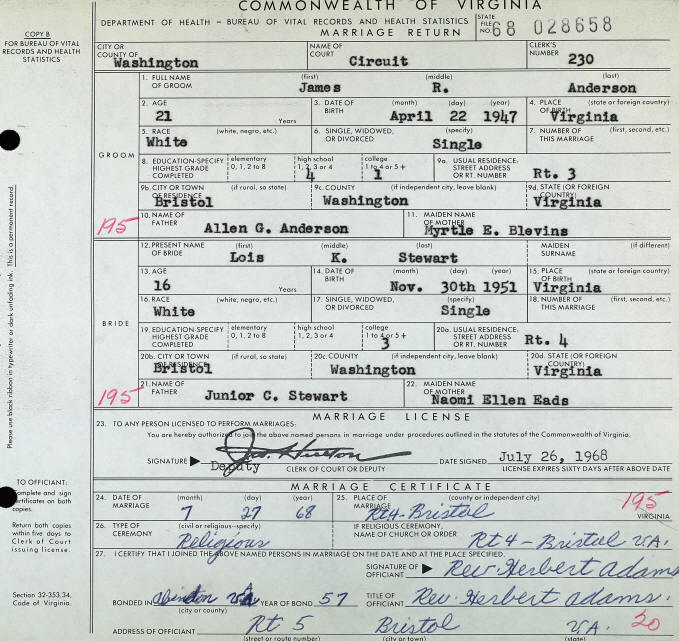 COMMONWEALTH OF VIRGINIA
DEPARTMENT OF HEALTH – BUREAU OF VITAL RECORDS AND HEALTH STATISTICS
MARRIAGE RETURN
STATE FILE NO. 68 028658
COPY B
FOR BUREAU OF VITAL
RECORDS AND HEALTH
STATISTICS
CITY OR COUNTY OF Washington NAME OF COURT Circuit CLERK'S NUMBER 230
GROOM
1. FULL NAME OF GROOM (first) James (middle) R. (last) Anderson
2. AGE 21 Years 3. DATE OF BIRTH (month) (day) (year) April 22 1947 4. PLACE OF BIRTH (state or foreign country) Virginia
5. RACE (white, negro, etc.) White 6. SINGLE, WIDOWED, OR DIVORCED (specify) Single 7. NUMBER OF THIS MARRIAGE (first, second, etc.)
8. EDUCATION-SPECIFY HIGHEST GRADE COMPLETED elementary 0, 1, 2 to 8 high school 1, 2, 3 or 4 4 college 1 to 4 or 5 + 1 9a. USUAL RESIDENCE: STREET ADDRESS OR RT. NUMBER Rt. 3
9b. CITY OR TOWN OF RESIDENCE (if rural, so state) Bristol 9c. COUNTY (if independent city, leave blank) Washington 9d. STATE (OR FOREIGN COUNTRY) Virginia
195 10. NAME OF FATHER Allen G. Anderson 11. MAIDEN NAME OF MOTHER Myrtle E. Blevins
BRIDE
12. PRESENT NAME OF BRIDE (first) Lois (middle) K. (last) Stewart MAIDEN SURNAME (if different)
13. AGE 16 Years 14. DATE OF BIRTH (month) (day) (year) Nov. 30th 1951 15. PLACE OF BIRTH (state or foreign country) Virginia
16. RACE (white, negro, etc.) White 17. SINGLE, WIDOWED, OR DIVORCED (specify) Single 18. NUMBER OF THIS MARRIAGE (first, second, etc.)
19. EDUCATION-SPECIFY HIGHEST GRADE COMPLETED elementary 0, 1, 2 to 8 high school 1, 2, 3 or 4 college 1 to 4 or 5+ 3 20a. USUAL RESIDENCE: STREET ADDRESS OR RT. NUMBER Rt. 4
20b. CITY OR TOWN OF RESIDENCE (if rural, so state) Bristol 20c. COUNTY (if independent city, leave blank) Washington 20d. STATE (OR FOREIGN COUNTRY) Virginia
195 21. NAME OF FATHER Junior C. Stewart 22. MAIDEN NAME OF MOTHER Naomi Ellen Eads
MARRIAGE LICENSE
23. TO ANY PERSON LICENSED TO PERFORM MARRIAGES:
You are hereby authorized to join the above named persons in marriage under procedures outlined in the statutes of the Commonwealth of Virginia.
SIGNATURE Deputy CLERK OF COURT OR DEPUTY DATE SIGNED July 26, 1968 LICENSE EXPIRES SIXTY DAYS AFTER ABOVE DATE
MARRIAGE CERTIFICATE
24. DATE OF MARRIAGE (month) (day) (year) 7 27 68 25. PLACE OF MARRIAGE (county or independent city) Rt 4 - Bristol 195 VIRGINIA
26. TYPE OF CEREMONY (civil or religious--specify) Religious IF RELIGIOUS CEREMONY, NAME OF CHURCH OR ORDER Rt 4 - Bristol VA.
27. I CERTIFY THAT I JOINED THE ABOVE NAMED PERSONS IN MARRIAGE ON THE DATE AND AT THE PLACE SPECIFIED.
SIGNATURE OF OFFICIANT Rev. Herbert Adams
BONDED IN Abingdon VA (city or county) YEAR OF BOND 57 TITLE OF OFFICIANT Rev. Herbert Adams.
ADDRESS OF OFFICIANT Rt 5 Bristol VA. 20
(street or route number) (city or town) (state)
Please use black ribbon in typewriter or dark unfading ink. This is a permanent record.
TO OFFICIANT:
Complete and sign
certificates on both
copies.
Return both copies
within five days to
Clerk of Court
issuing license.
Section 32-353.34,
Code of Virginia.